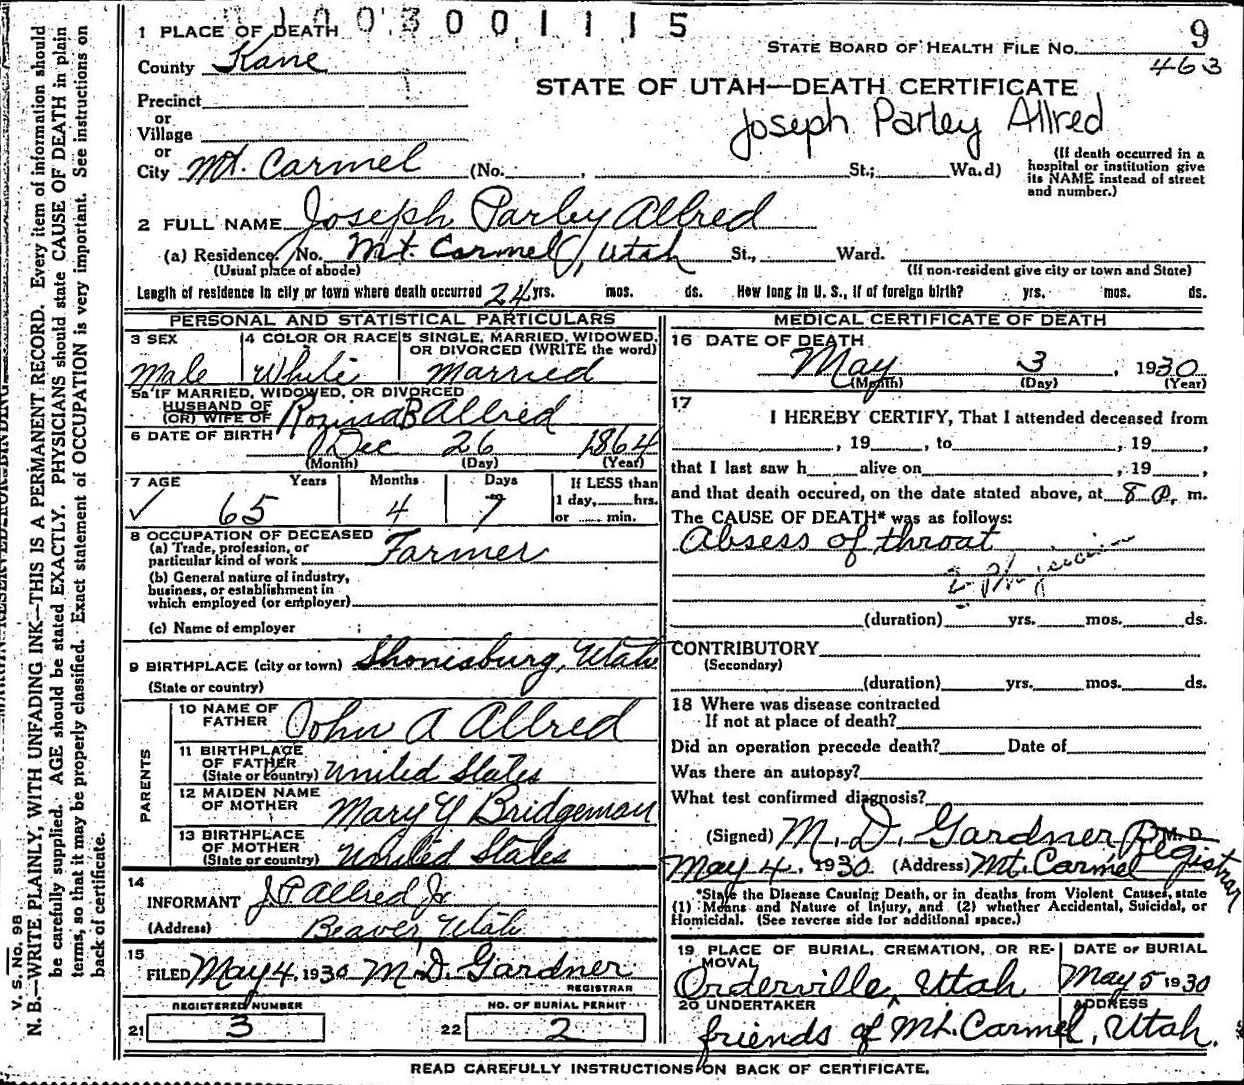 1003001115
1 PLACE OF DEATH
STATE BOARD OF HEALTH FILE NO. 9
463
County Kane
STATE OF UTAH—DEATH CERTIFICATE
Precinct
Joseph Parley Allred
or
Village
or
City Mt. Carmel (No. , St.; Wa.d)
(If death occurred in a hospital or institution give its NAME instead of street and number.)
2 FULL NAME Joseph Parley Allred
(a) Residence. No. Mt. Carmel, Utah St., Ward.
(Usual place of abode) (If non-resident give city or town and State)
Length of residence in city or town where death occurred 24 yrs. mos. ds. How long in U. S., if of foreign birth? yrs. mos. ds.
PERSONAL AND STATISTICAL PARTICULARS
3 SEX Male
4 COLOR OR RACE White
5 SINGLE, MARRIED, WIDOWED, OR DIVORCED (WRITE the word) Married
5a IF MARRIED, WIDOWED, OR DIVORCED
HUSBAND OF
(OR) WIFE OF Rozina B Allred
6 DATE OF BIRTH Dec 26 1864
(Month) (Day) (Year)
7 AGE Years Months Days If LESS than
1 day, hrs.
or min.
✓ 65 4 7
8 OCCUPATION OF DECEASED
(a) Trade, profession, or
particular kind of work Farmer
(b) General nature of industry,
business, or establishment in
which employed (or employer)
(c) Name of employer
9 BIRTHPLACE (city or town) Shonesburg, Utah
(State or country)
PARENTS
10 NAME OF FATHER John A Allred
11 BIRTHPLACE OF FATHER
(State or country) United States
12 MAIDEN NAME OF MOTHER Mary Y Bridgeman
13 BIRTHPLACE OF MOTHER
(State or country) United States
14
INFORMANT J. P Allred Jr
(Address) Beaver, Utah
15
FILED May 4, 1930 M. D. Gardner
REGISTRAR
REGISTERED NUMBER
21 3
NO. OF BURIAL PERMIT
22 2
MEDICAL CERTIFICATE OF DEATH
16 DATE OF DEATH
May 3, 1930
(Month) (Day) (Year)
17
I HEREBY CERTIFY, That I attended deceased from
, 19 , to , 19 ,
that I last saw h alive on , 19 ,
and that death occured, on the date stated above, at 8 P. m.
The CAUSE OF DEATH* was as follows:
Absess of throat
Physician
(duration) yrs. mos. ds.
CONTRIBUTORY
(Secondary)
(duration) yrs. mos. ds.
18 Where was disease contracted
If not at place of death?
Did an operation precede death? Date of
Was there an autopsy?
What test confirmed diagnosis?
(Signed) M. D. Gardner M. D. Registrar
May 4, 1930 (Address) Mt. Carmel
*State the Disease Causing Death, or in deaths from Violent Causes, state
(1) Means and Nature of Injury, and (2) whether Accidental, Suicidal, or
Homicidal. (See reverse side for additional space.)
19 PLACE OF BURIAL, CREMATION, OR REMOVAL
Orderville, Utah
DATE OF BURIAL
May 5 1930
20 UNDERTAKER ADDRESS
friends of Mt. Carmel, Utah.
READ CAREFULLY INSTRUCTIONS ON BACK OF CERTIFICATE.
V. S. No. 98
N. B.—WRITE PLAINLY, WITH UNFADING INK—THIS IS A PERMANENT RECORD. Every item of information should
be carefully supplied. AGE should be stated EXACTLY. PHYSICIANS should state CAUSE OF DEATH in plain
terms, so that it may be properly classified. Exact statement of OCCUPATION is very important. See instructions on
back of certificate.